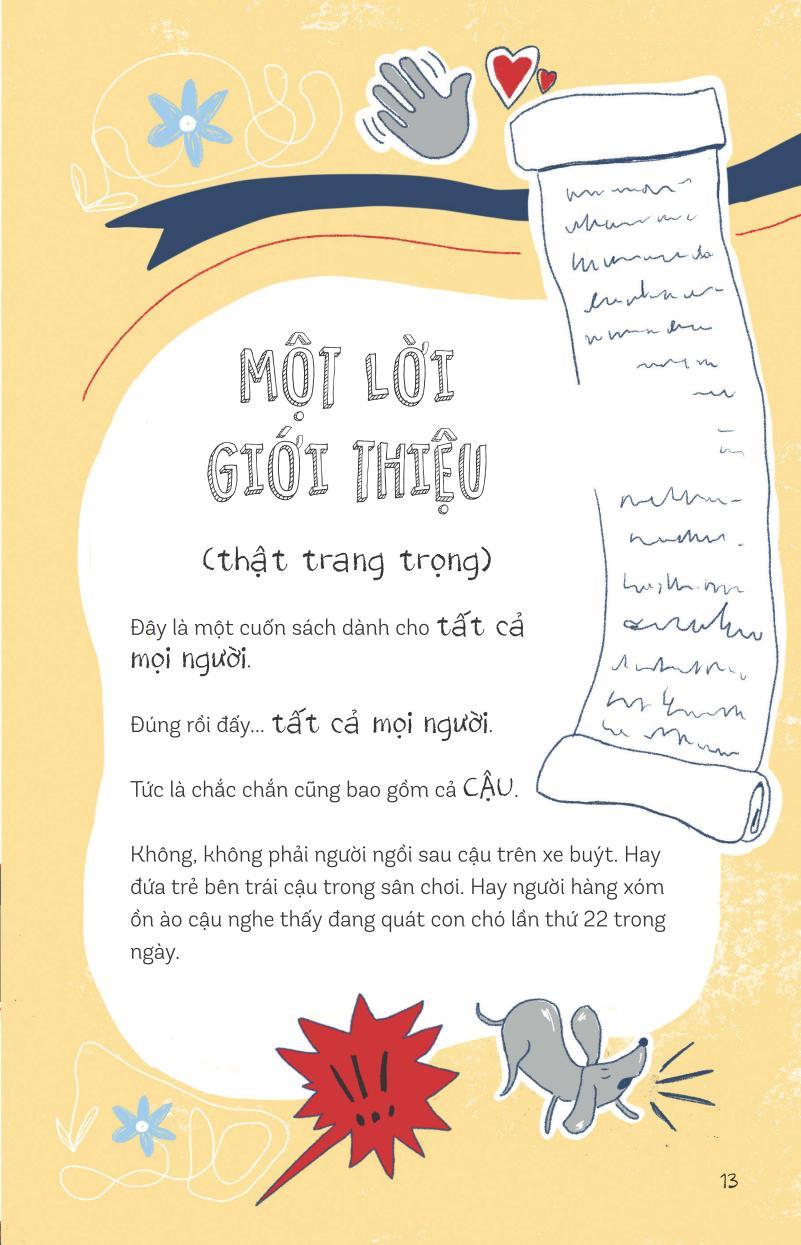 MỘT LỜI
GIỚI THIỆU
(thật trang trọng)
Đây là một cuốn sách dành cho tất cả
mọi người.
Đúng rồi đấy... tất cả mọi người.
Tức là chắc chắn cũng bao gồm cả CẬU.
Không, không phải người ngồi sau cậu trên xe buýt. Hay
đứa trẻ bên trái cậu trong sân chơi. Hay người hàng xóm
ồn ào cậu nghe thấy đang quát con chó lần thứ 22 trong
ngày.
!!!
13